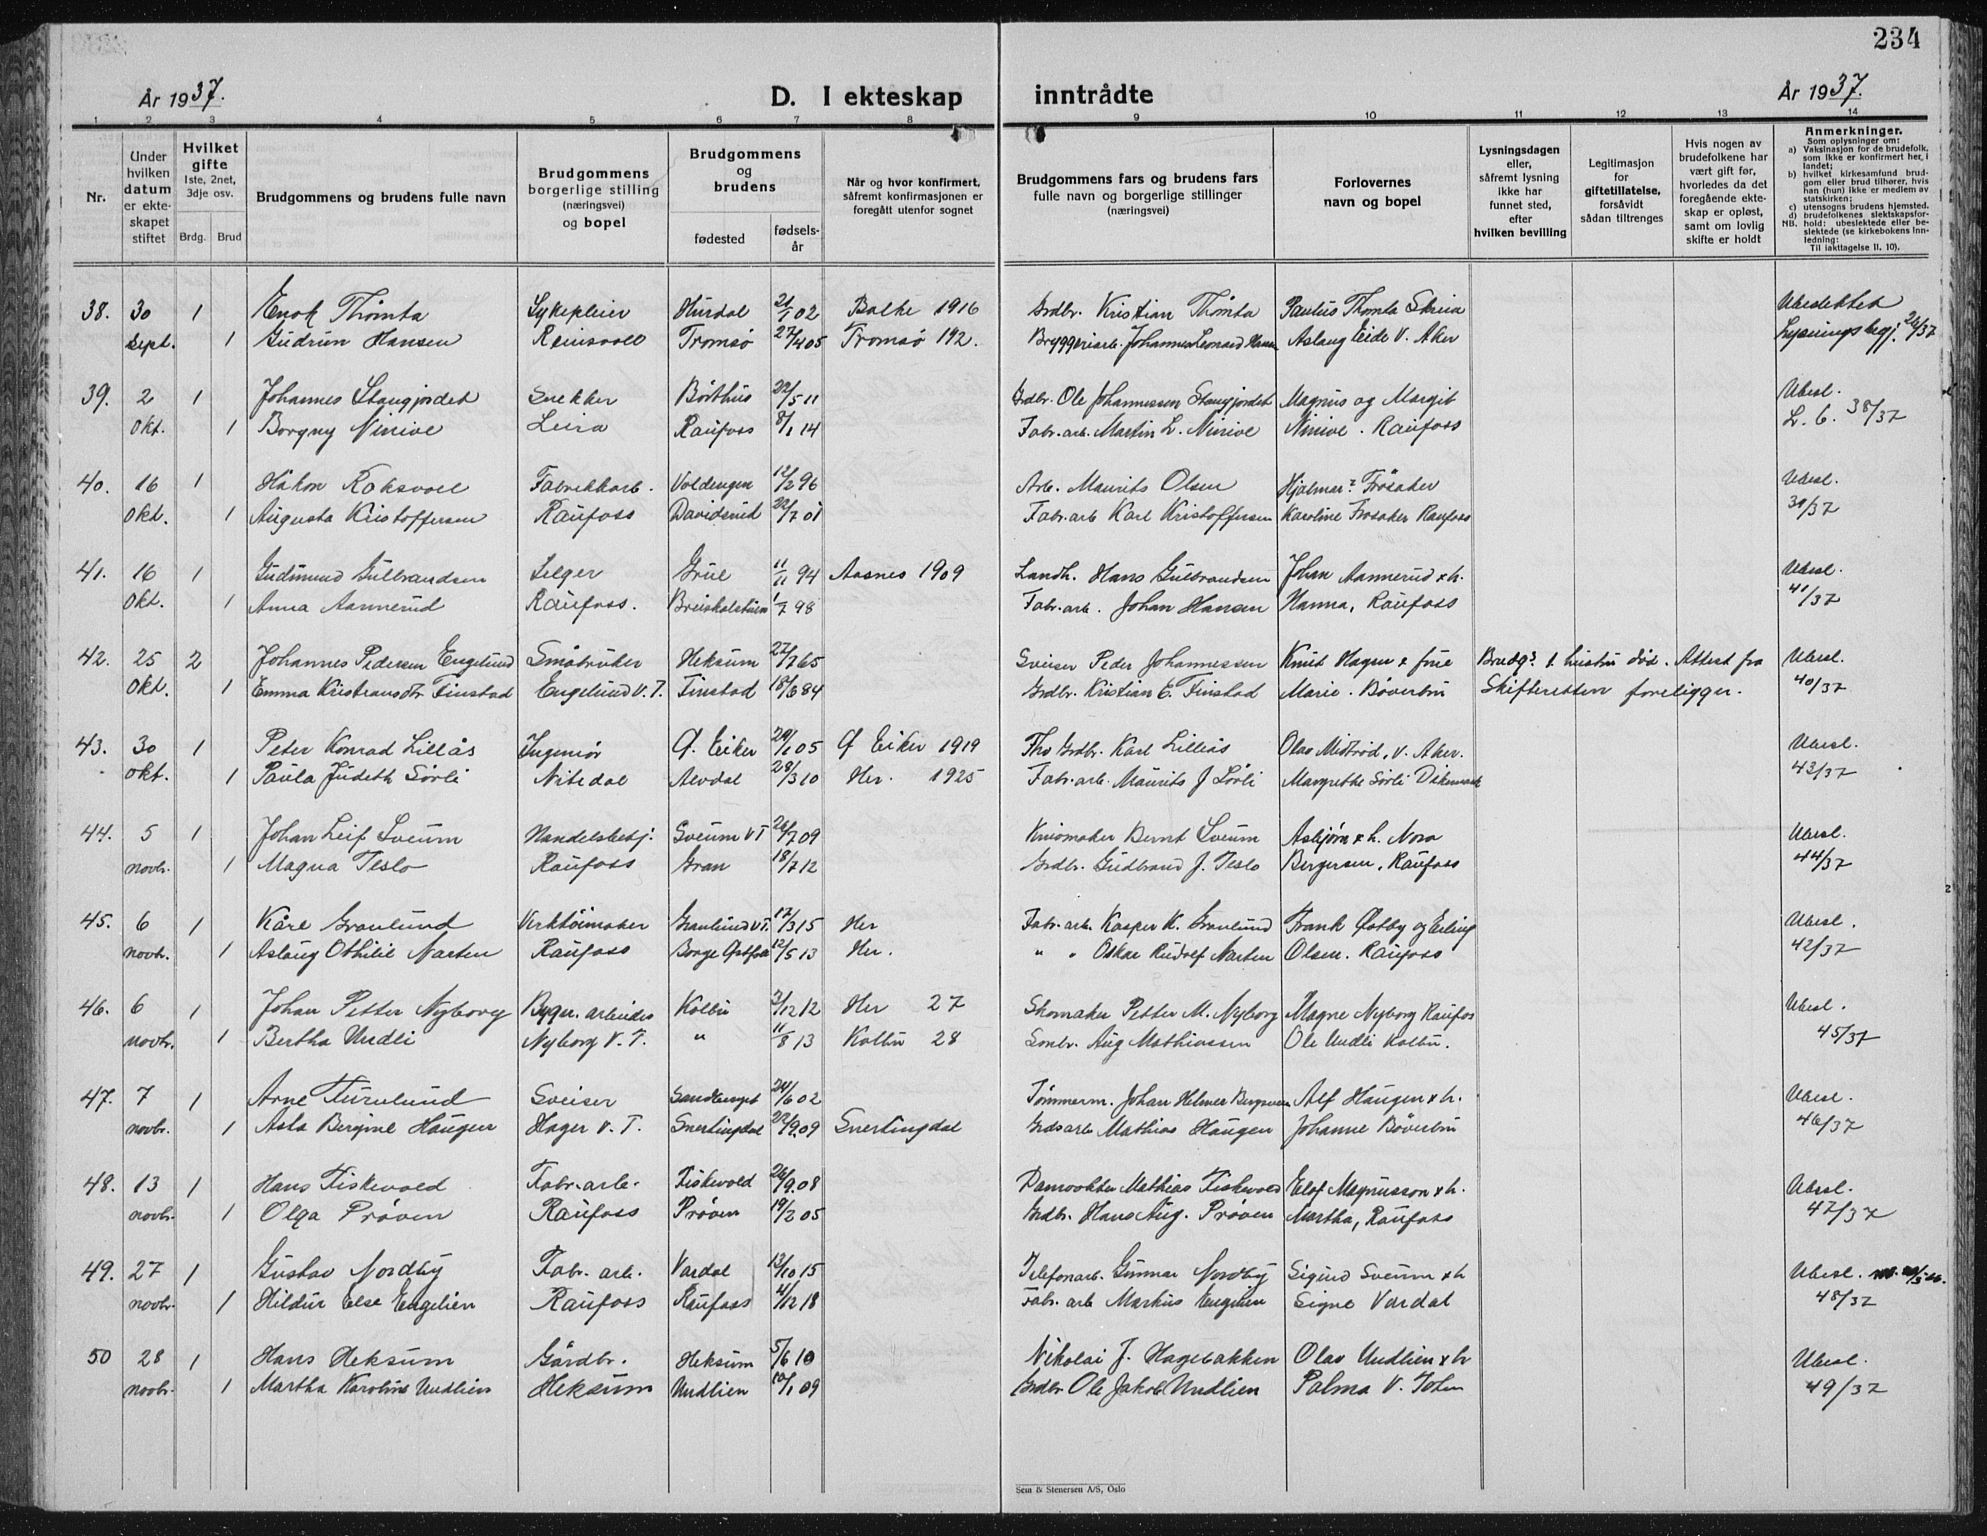 234
År 1937. D. I ekteskap inntrådte År 1937.
1 2 3 4 5 6 7 8 9 10 11 12 13 14
Nr.
Under hvilken datum er ekteskapet stiftet
Hvilket gifte
1ste, 2net, 3dje osv.
Brdg. Brud
Brudgommens og brudens fulle navn
Brudgommens borgerlige stilling (næringsvei) og bopel
Brudgommens og brudens
fødested fødsels-år
Når og hvor konfirmert, såfremt konfirmasjonen er foregått utenfor sognet
Brudgommens fars og brudens fars fulle navn og borgerlige stillinger (næringsvei)
Forlovernes navn og bopel
Lysningsdagen eller, såfremt lysning ikke har funnet sted, efter hvilken bevilling
Legitimasjon for giftetillatelse, forsåvidt sådan tiltrenges
Hvis nogen av brudefolkene har vært gift før, hvorledes da det foregående ekteskap er opløst, samt om lovlig skifte er holdt
Anmerkninger.
Som oplysninger om:
a) Vaksinasjon for de brudefolk, som ikke er konfirmert her, i landet;
b) hvilket kirkesamfund brudgom eller brud tilhører, hvis han (hun) ikke er medlem av statskirken;
c) utensogns brudens hjemsted.
d) brudefolkenes slektskapsforhold: ubeslektede eller beslektede (se kirkebokens Innledning:
NB. Til iakttagelse II, 10).
38. 30 1 Enok Thømta Sykepleier Hurdal 21/1 02 Balke 1916 Grdbr. Kristian Thømta Paulus Thømta Skreia Ubeslektet
Sept. 1 Gudrun Hansen Reinsvoll Tromsø 27/4 05 Tromsø 192. Bryggeriarb. Johannes Leonard Hansen Aslaug Eide V. Aker Lysningsbegj. /37
39. 2 1 Johannes Staugjordet Snekker Børthus 22/5 11 Grdbr. Ole Johannessen Staugjordet Magnus og Margit Ubesl.
Okt. 1 Borgny Ninive Leira Raufoss 8/1 14 Fabr.arb. Martin L. Ninive Ninive. Raufoss L. b. 38/37
40. 16 1 Håkon Roksvoll Fabrikkarb. Voldengen 12/2 96 Arb. Maurits Olsen Hjalmar Frøsaker Ubesl.
Okt. 1 Augusta Kristoffersen Raufoss Davidsrud 22/7 01 Fabr.arb Karl Kristoffersen Karoline Frøsaker Raufoss 39/37
41. 16 1 Gudmund Gulbrandsen Selger Grue 11/11 94 Aasnes 1909 Landh. Hans Gulbrandsen Johan Aannerud x h. Ubesl.
Okt. 1 Anna Aannerud Raufoss. 1/7 98 Fabr.arb. Johan Hansen Hanna, Raufoss 41/37
42. 25 2 Johannes Pedersen Engelund Småbruker Heksum 27/7 65 Sveiser Peder Johannessen Knut Hagen x frue Brudg.s 1. hustru død. Attest fra Ubesl.
Okt. 1 Emma Kristiansdtr Finstad Engelund V. T. Finstad 18/6 84 Grdbr. Kristian E. Finstad Marie. Bøverbru Skifteretten foreligger. 40/37
43. 30 1 Peter Konrad Lillås Ingeniør Ø. Eiker 29/1 05 Ø Eiker 1919 Fhv Grdbr. Karl Lillås Olav Midtrød, V. Aker. Ubesl.
Okt. 1 Paula Judeth Sørli Nitedal Alvdal 28/3 10 Her. 1925 Fabr.arb. Maurits J Sørli Margrethe Sørli Dikemark 43/37
44. 5 1 Johan Leif Sveum Handelsbetj. Sveum V T 26/7 09 Kniomaker Bernt Sveum Asbjørn x h. Nora Ubesl.
novbr. 1 Magna Teslo Raufoss Gran 18/7 12 Grdbr. Gudbrand J. Teslo Bergersen, Raufoss 44/37
45. 6 1 Kåre Granlund Verktøimaker Granlund V.T. 17/3 15 Her Fabr. arb. Kasper K. Granlund Frank Østby og Erling Ubesl.
novbr. 1 Aslaug Othilie Narten Raufoss Borge Østfold 12/5 13 Her. " " Oskar Rudolf Narten Olsen. Raufoss 42/37
46. 6 1 Johan Petter Nyborg Bygn. arbeider Kolbu 3/12 12 Her 27 Skomaker Petter M. Nyborg Magne Nyborg Raufos Ubesl.
novbr. 1 Bertha Undli Nyborg V. T. " 11/8 13 Kolbu 28 Smbr. Aug Mathiassen Ole Undli Kolbu. 45/37
47. 7 1 Arne Furulund Sveiser 24/6 02 Tømmerm. Johan Helmer Bergsveen Alf Haugen x h. Ubesl.
novbr. 1 Asta Bergine Haugen Hager V. T. Snertingdal 22/9 09 Snertingdal Grdsarb Mathias Haugen Johanne Bøverbru 46/37
48. 13 1 Hans Fiskevold Fabr.arb. Fiskevold 26/9 08 Damvokter Mathias Fiskevold Elof Magnusson x h. Ubesl.
novbr. 1 Olga Prøven Raufoss Prøven 19/2 05 Grdbr. Hans Aug. Prøven Martha, Raufoss 47/37
49. 27 1 Gustav Nordby Fabr. arb. Vardal 13/10 15 Telefonarb. Gunnar Nordby Sigurd Sveum x h Ubesl.
novbr. 1 Hildur Else Engelien Raufoss Raufoss 4/12 18 Fabr. arb Markus Engelien Signe Vardal 48/37
50 28 1 Hans Heksum Gårdbr. Heksum 5/6 10 Nikolai J. Hagebakken Olav Undlien x h Ubesl.
novbr. 1 Martha Karoline Undlien Heksum Undlien 10/1 09 Grdbr Ole Jakob Undlien Palma V. Toten 49/37
Sem & Stenersen A/S, Oslo